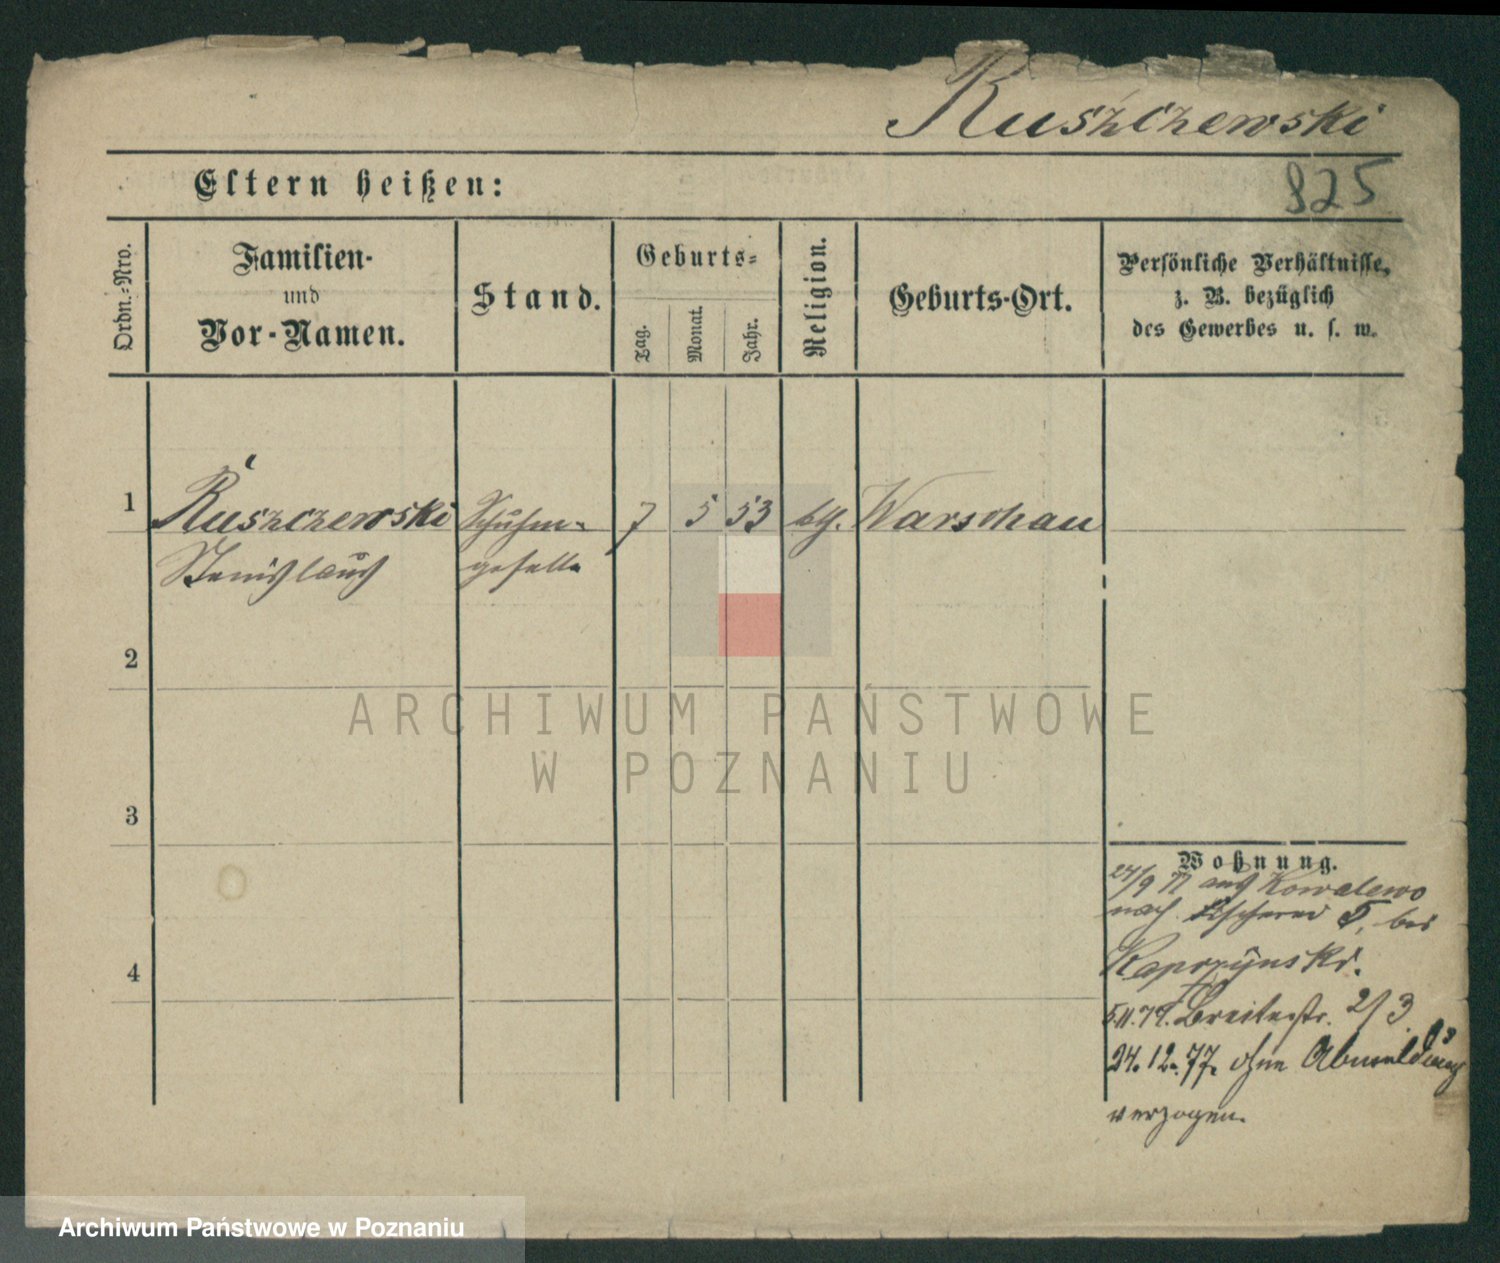 Rušzczewski
825
Eltern heißen:
Ordn.-Nro.
Familien-
und
Vor-Namen.
Stand.
Geburts-
Tag.
Monat.
Jahr.
Religion.
Geburts-Ort.
Persönliche Verhältnisse,
z. B. bezüglich
des Gewerbes u. s. w.
1 Ruszczewski Schuhm- 7 5 53 kth. Warschau
Stanislaus geselle
2
3
4
Wohnung.
24/9 77 aus Kowalewo
nach Fischerei 5, bei
5.11.77. Breitestr. 2/3
24.12.77. ohne Abmeldung
verzogen.
ARCHIWUM PAŃSTWOWE
W POZNANIU
Archiwum Państwowe w Poznaniu